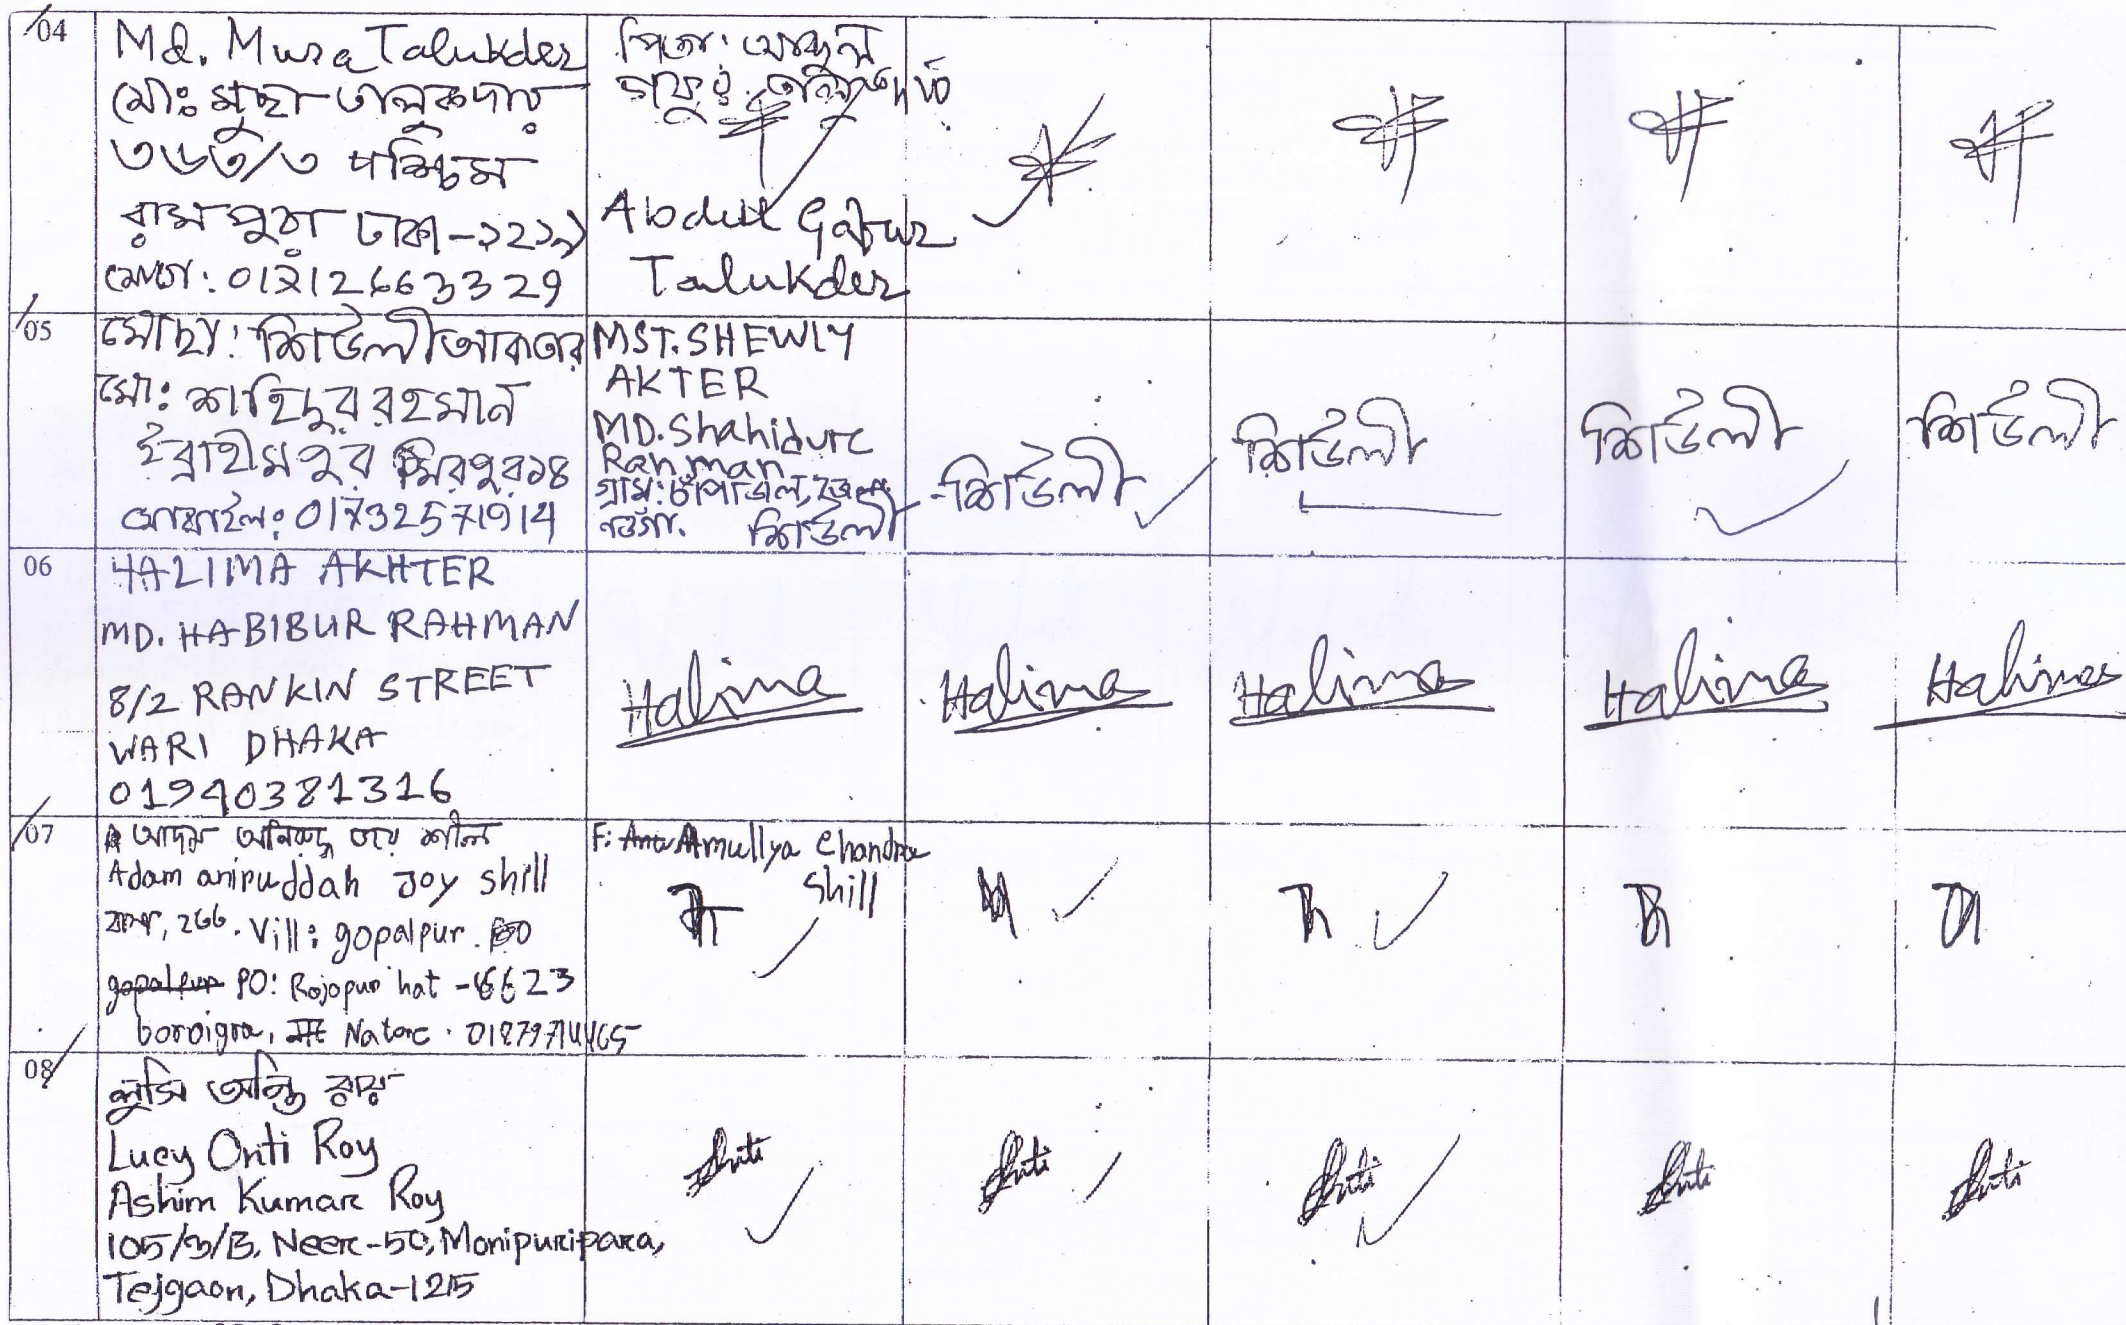 04
Md. Musa Talukder
মোঃ মুছা তালুকদার
৩৬৩/৩ পশ্চিম
রামপুরা ঢাকা-১২১৯
পিতা: আব্দুল
গফুর তালুকদার
Abdul Gafur
Talukder
05
মোছা: শিউলী আকতার
মো: শাহিদুর রহমান
ইব্রাহীমপুর মিরপুর ১৪
মোবাইল: 01732571914
MST. SHEWLY
AKTER
MD. Shahidur
Rahman
গ্রাম:
শিউলী
শিউলী
শিউলী
শিউলী
শিউলী
06
HALIMA AKHTER
MD. HABIBUR RAHMAN
8/2 RANKIN STREET
WARI DHAKA
01940381316
Halima
Halima
Halima
Halima
Halima
07
আদম অনিরুদ্ধ জয় শীল
Adam aniruddah Joy shill
266. Vill: gopalpur.
PO: Rajapur hat - 6623
boraigra, Natore.
F: Amullya Chandra
Shill
08
লুসি অন্তি রায়
Lucy Onti Roy
Ashim Kumar Roy
105/3/B, Neer-50, Monipuripara,
Tejgaon, Dhaka-1215